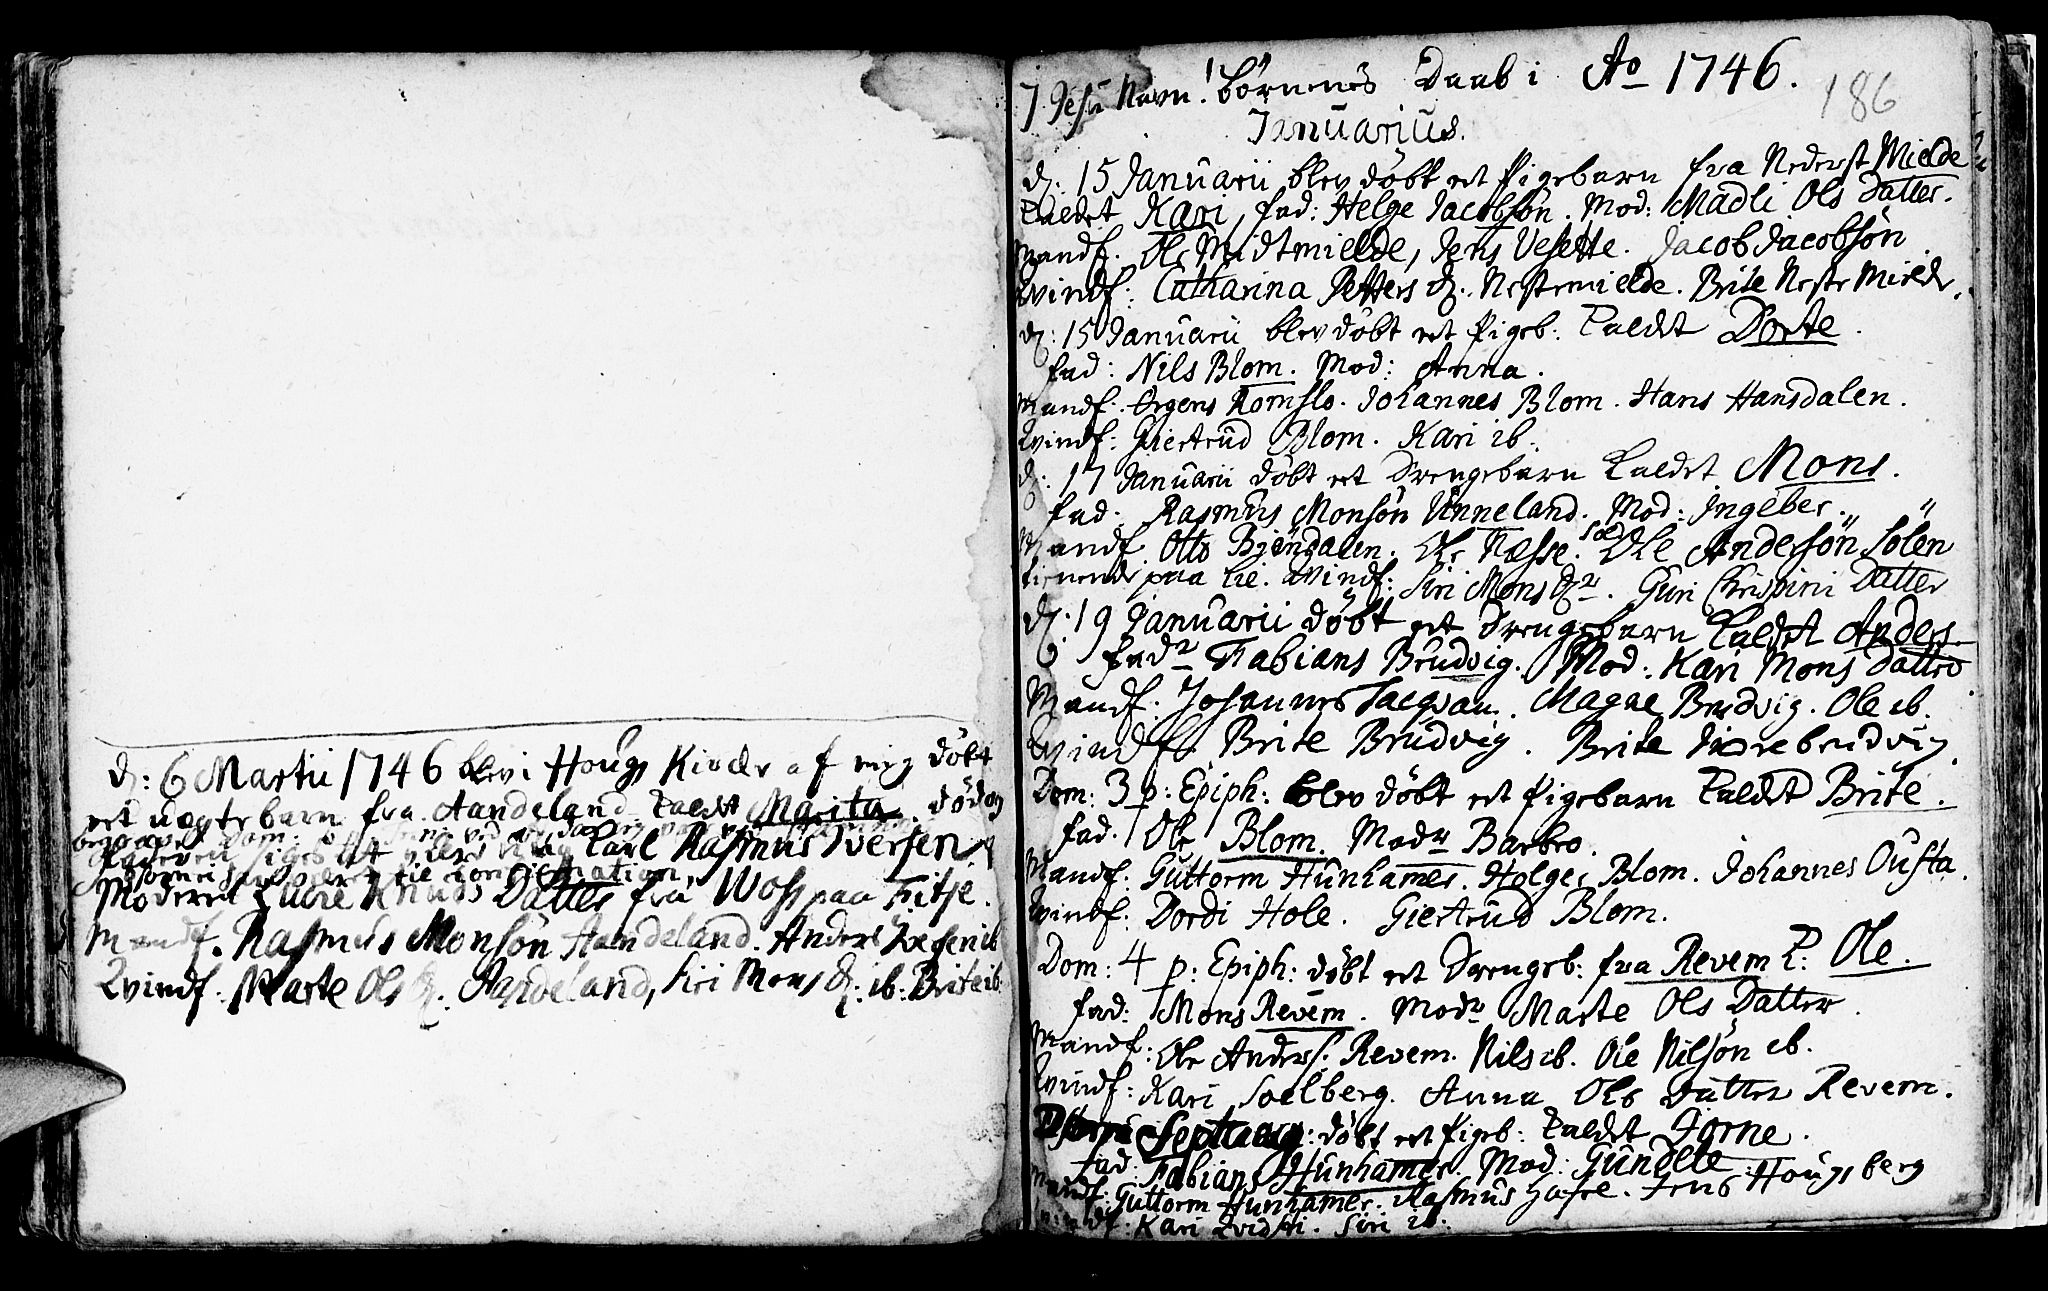 d: 6 Martii 1746 blev i Hougs Kirke af mig döbt
et uægte barn fra Aandeland kaldet Marita. död og
begravet Dom:
Faderen siges at være ung karl Rasmus Iversen
til confirmation
Moderen Knuds Datter fra Woss paa Fitje.
Mandf. Rasmus Monsön Handeland. Anders Iversen ib
Qvindf: Marte Ols d: Aandeland, Siri Mons d: ib: Brite ib
J Jesu Navn! börnenes Daab i Ao 1746.
186
Januarius.
d: 15 Januarii blev döbt et Pigebarn fra Nederst Mielde
kaldet Kari, fad: Helge Jacobsön. Mod: Madli Ols Datter.
Mandf. Ole Midtmielde, Jens Vesette. Jacob Jacobsön
Qvindf: Catharina Petters d: Nestemielde. Brite Neste Mielde.
d: 15 Januarii blev döbt et Pigeb: kaldet Dorte.
fad: Nils Blom. Mod: Anna.
Mandf. Örgens Romslo. Johannes Blom. Hans Hansdalen.
Qvindf: Giertrud Blom. Kari ib.
d: 17 Januarii döbt et Drengebarn kaldet Mons.
fad. Rasmus Monsön Vinneland. Mod: Ingeber.
Mandf. Otto Biöndalen. Ole Næsse. Sold Ole Andersön Solen
tienende paa Lie. Qvindf: Siri Mons Dr. Guri Chrispini Datter
d: 19 Januarii döbt et Drengebarn kaldet Anders
fadr Fabians Brudvig. Mod: Kari Mons Datter
Mandf: Johannes Tacqvam. Magne Brudvig. Ole ib.
Qvindf: Brite Brudvig. Brite Indrebrudvig.
Dom: 3 p: Epiph: blev döbt et Pigebarn kaldet Brite.
fad. Ole Blom. Modr Barbro.
Mandf: Guttorm Hunhamer. Holger Blom. Johannes Ousta.
Qvindf: Dordi Hole. Giertrud Blom.
Dom: 4 p: Epiph: döbt et Drengeb: fra Revem k: Ole.
fad: Mons Revem. Modr Marte Ols Datter.
Mandf: Ole Anders: Revem. Nils ib. Ole Nilsön ib.
Qvindf: Kari Soelberg. Anna Ols Datter Revem.
Septuag: döbt et Pigeb: kaldet Jorne.
fad. Fabians Hunhamer. Mod: Gunille
Mandf: Guttorm Hunhamer. Rasmus Jens Hougsberg
Qvindf. Kari Qvidsti. Siri ib.